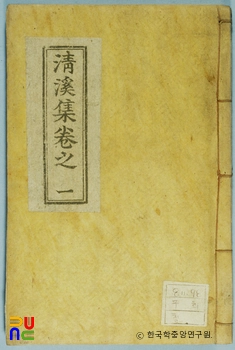 清溪集卷之一
ⓒ 한국학중앙연구원